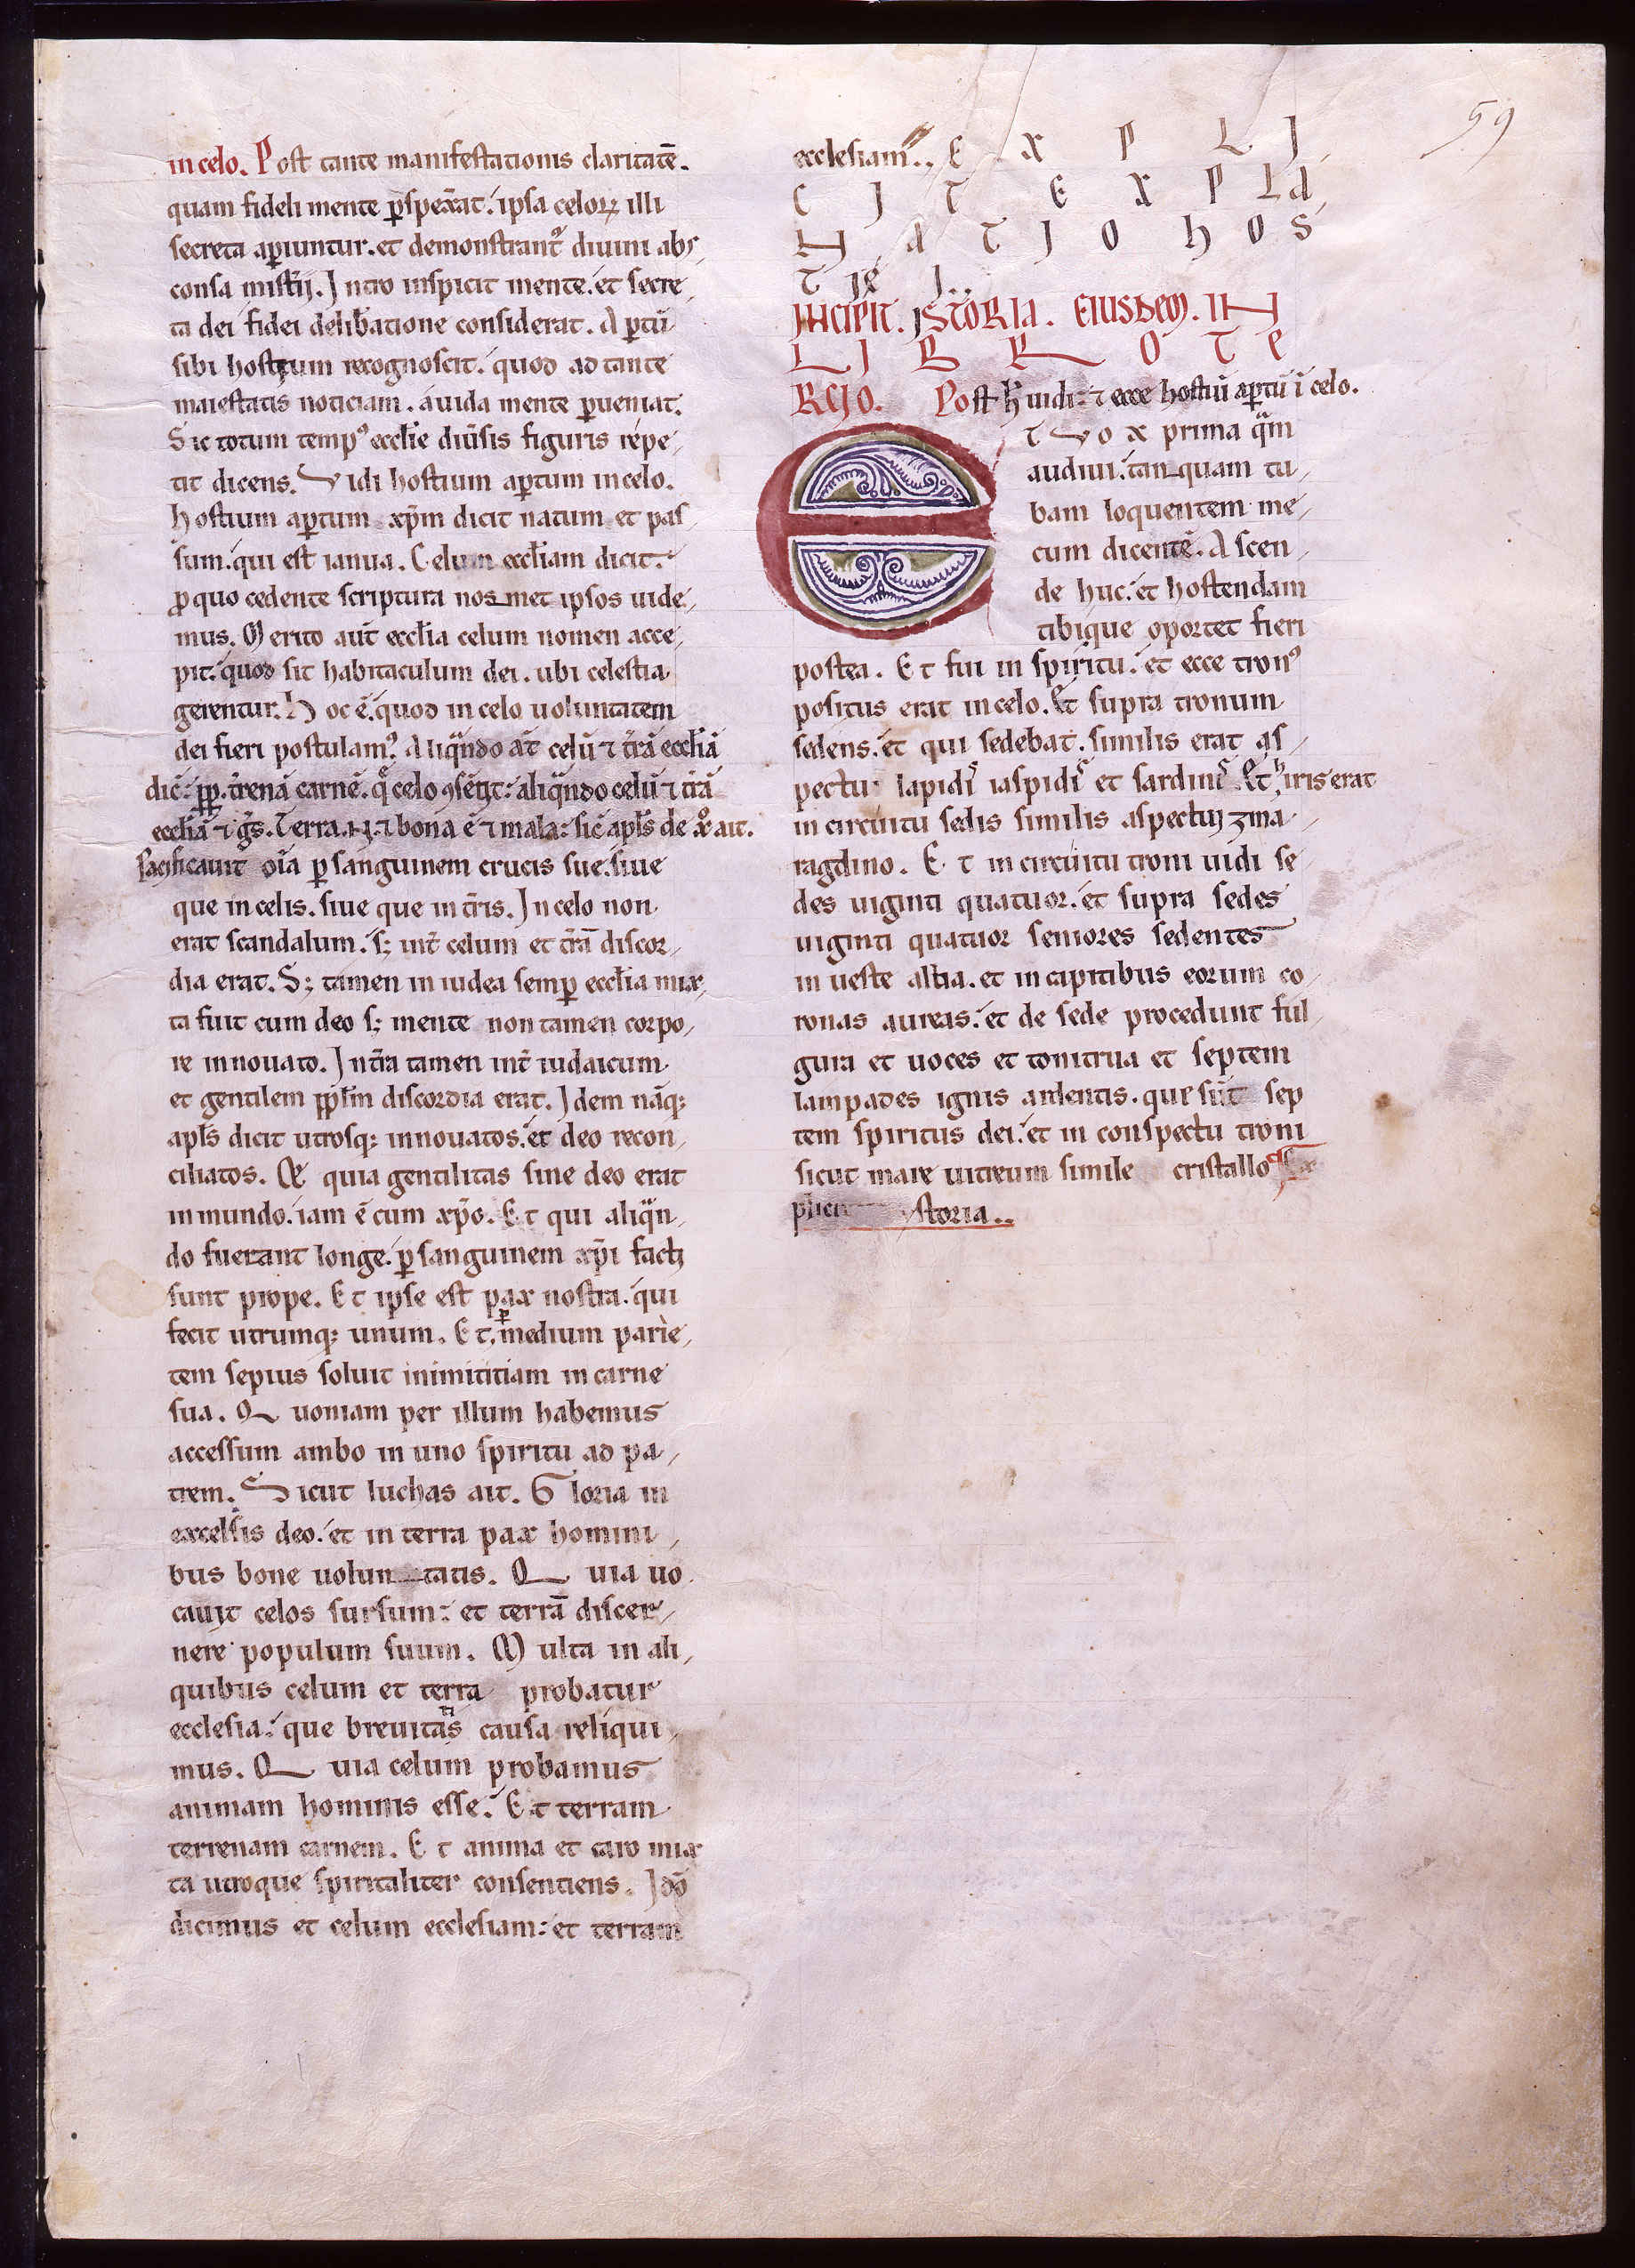 59
in celo. Post tante manifestationis claritatē.
quam fideli mente ꝑspexat. ipsa celoꝝ illi
secreta apiuntur. et demonstrant᷒ diuini abs
consa mistij. Intro inspicit mente. et secre
ta dei fidei delibatione considerat. Aptū
sibi hostium recognoscit. quod ad tante
maiestatis noticiam. auida mente ꝑueniat.
Sic totum tempꝰ ecclie diūsis figuris repe
tit dicens. Vidi hostium aptum in celo.
hostium aptum xp̄m dicit natum et pas
sum. qui est ianua. Celum eccliam dicit.
ꝓ quo cedente scriptura nosmet ipsos uide
mus. Merito aut ecclia celum nomen acce
pit. quod sit habitaculum dei. ubi celestia
gerentur. Hoc ē. quod in celo uoluntatem
dei fieri postulamꝰ. Aliqndo at celū ⁊ trā eccliā
dic̄: trenā carnē. q̄ celo ꝯsētit: aliqndo celū ⁊ trā
eccliā Terra ⁊ bona ē ⁊ mala: sic apls de ait.
oīa ꝑ sanguinem crucis sue. siue
que in celis. siue que in tris. In celo non
erat scandalum. s; int celum et trā discor
dia erat. S; tamen in iudea semꝑ ecclia mix
ta fuit cum deo s; mente non tamen corpo
re innouato. In tra tamen int iudaicum
et gentilem pplm discordia erat. Idem nāq;
apls dicit utrosq; innouatos. et deo recon
ciliatos. Et quia gentilitas sine deo erat
in mundo. iam ē cum xp̄o. Et qui aliqn
do fuerant longe. ꝑ sanguinem xp̄i facti
sunt prope. Et ipse est pax nostra. qui
fecit utrumq; unum. Et medium parie
tem sepius soluit inimititiam in carne
sua. Quoniam per illum habemus
accessum ambo in uno spiritu ad pa
trem. Sicut luchas ait. Gloria in
excelsis deo. et in terra pax homini
bus bone uoluntatis. Quia uo
cauit celos sursum: et terrā discer
nere populum suum. Multa in ali
quibus celum et terra probatur
ecclesia. que breuitatis causa reliqui
mus. Quia celum probamus
animam hominis esse. Et terram
terrenam carnem. Et anima et caro mix
ta utroque spiritaliter consentiens. Idō
dicimus et celum ecclesiam: et terram
ecclesiam. E X P L I
C I T E X P L A
N A T I O H O S
T I I..
INCIPIT. ISTORIA. EIUSDEM. IN
L I B R O T E
RCIO. Post h uidi: ⁊ ecce hostiū aptū ī celo.
ET Vox prima qm
audiui. tanquam tu
bam loquentem me
cum dicentē. Ascen
de huc. et hostendam
tibi que oportet fieri
postea. Et fui in spiritu. et ecce tronꝰ
positus erat in celo. Et supra tronum
sedens. et qui sedebat. similis erat as
pectu lapidis iaspidis et sardinis. Et iris erat
in circuitu sedis similis aspectui zma
ragdino. Et in circuitu troni uidi se
des uiginti quatuor. et supra sedes
uiginti quatuor seniores sedentes
in ueste alba. et in capitibus eorum co
ronas aureas. et de sede procedunt ful
gura et uoces et tonitrua et septem
lampades ignis ardentis. que sūt sep
tem spiritus dei. et in conspectu troni
sicut mare uitreum simile cristallo Ex
plicit ystoria..